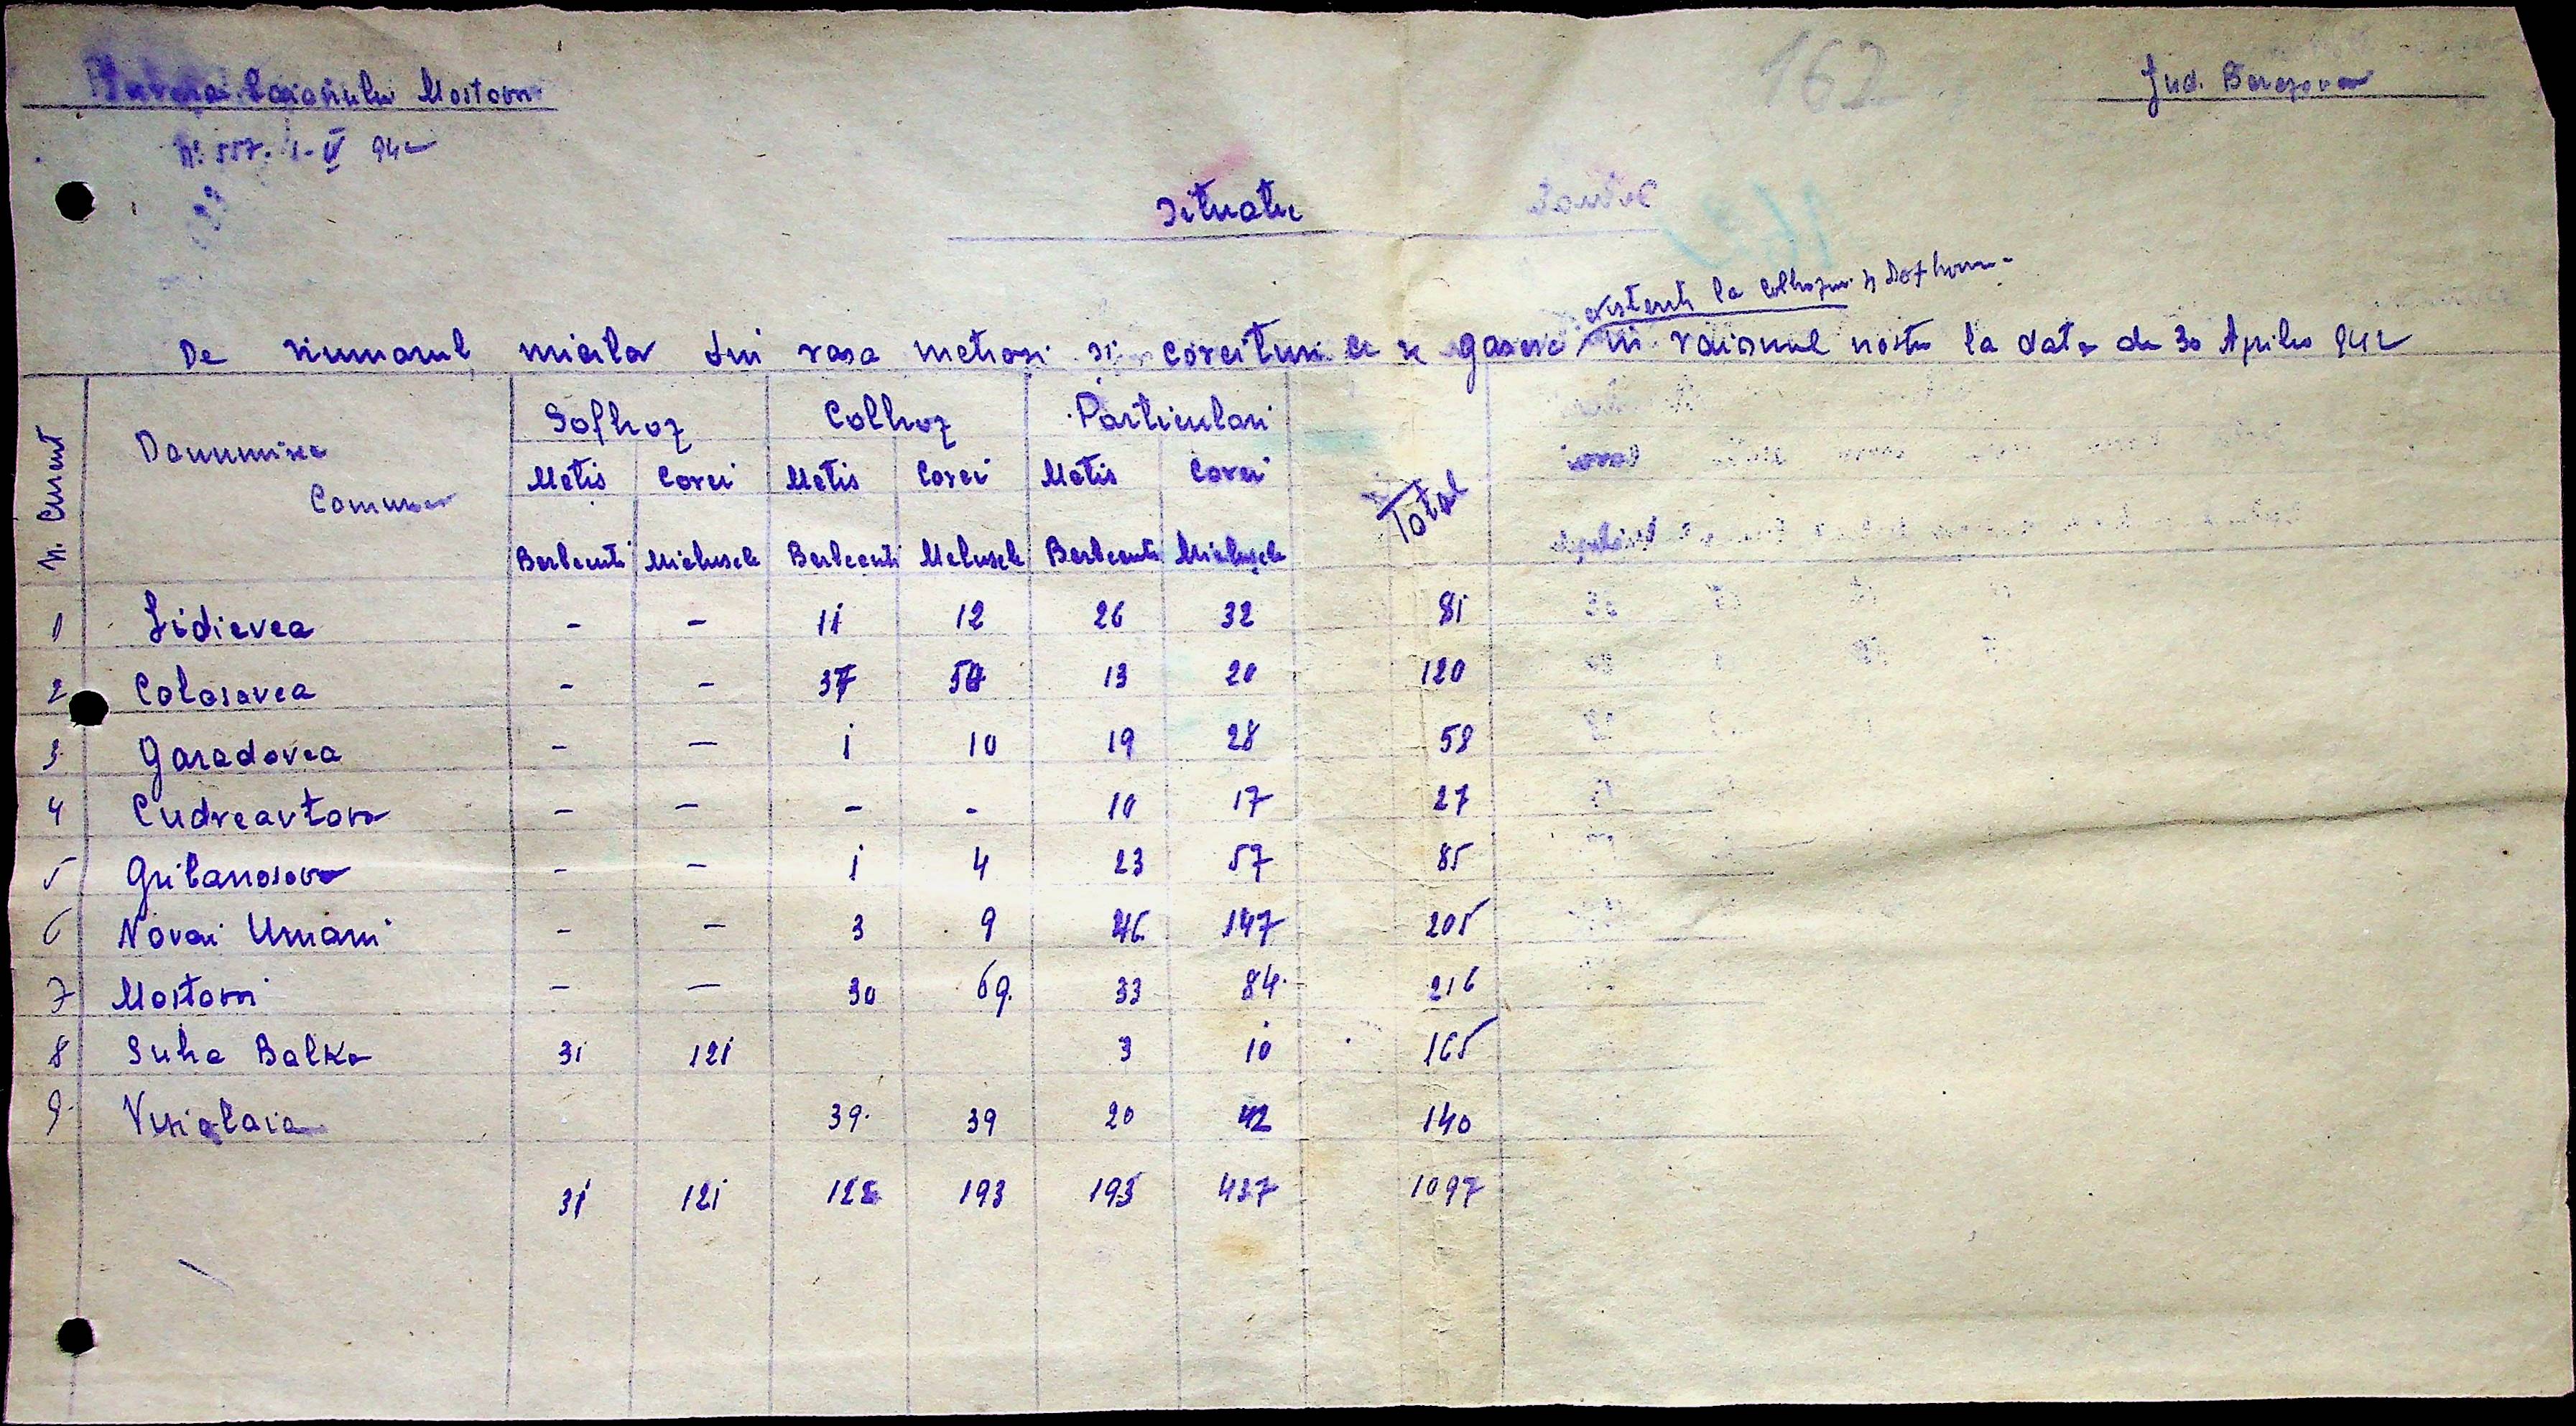 Raionului Mostovoi
Jud. Berezovca
162
Nr. 557. 1-V 942
Situatie
existenti la Colhozuri si Sofhozuri
De numarul mieilor din rasa metiozi si corcituri ce se gasesc in raionul nostru la data de 30 Aprilie 942
N. Curent Denumirea Comunei Sofhoz Colhoz Particulari Total
Metis Corci Metis Corci Metis Corci
Berbecuti Mielusele Berbecuti Melusele Berbecuti Mielusele
1 Lidievca - - 11 12 26 32 81
2 Colosovca - - 37 50 13 20 120
3 Garadovca - - 1 10 19 28 58
4 Cudreavtova - - - - 10 17 27
5 Gribanosova - - 1 4 23 57 85
6 Novai Umani - - 3 9 46 147 205
7 Mostovoi - - 30 69 33 84 216
8 Suha Balka 31 121 3 10 165
9 Visialaia 39 39 20 42 140
31 121 122 193 193 437 1097